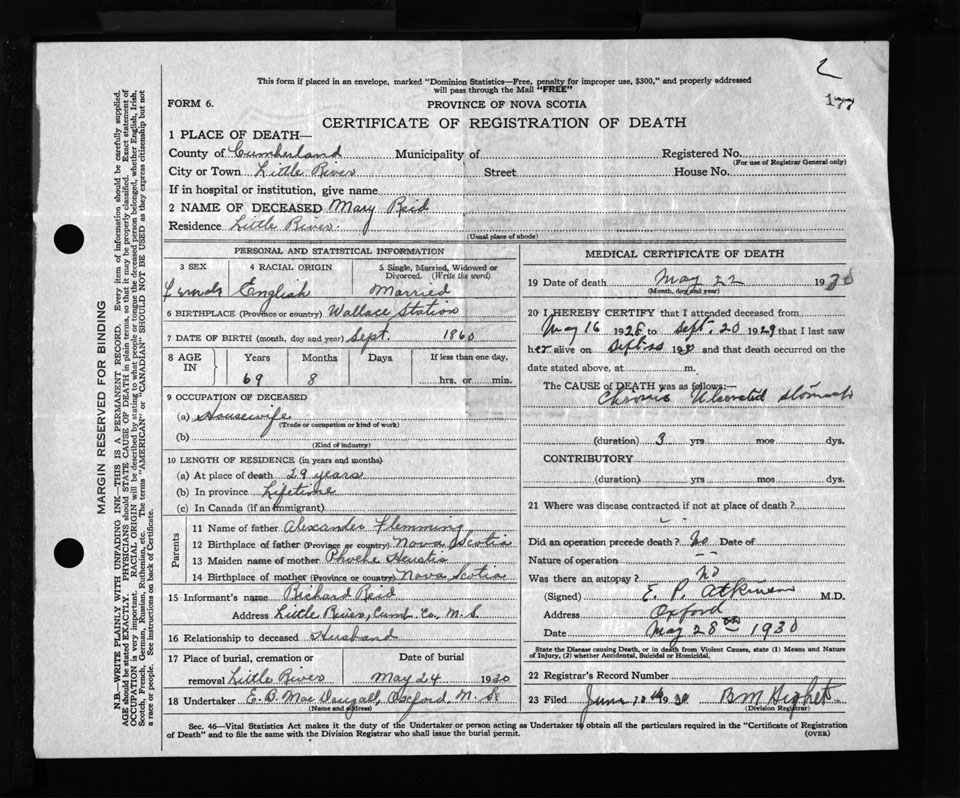 2
177
This form if placed in an envelope, marked "Dominion Statistics—Free, penalty for improper use, $300," and properly addressed
will pass through the Mail "FREE"
FORM 6.
PROVINCE OF NOVA SCOTIA
CERTIFICATE OF REGISTRATION OF DEATH
1 PLACE OF DEATH—
County of Cumberland Municipality of Registered No.
(For use of Registrar General only)
City or Town Little River Street House No.
If in hospital or institution, give name
2 NAME OF DECEASED Mary Reid
Residence Little River.
(Usual place of abode)
PERSONAL AND STATISTICAL INFORMATION
3 SEX 4 RACIAL ORIGIN 5 Single, Married, Widowed or Divorced. (Write the word)
Female English Married
6 BIRTHPLACE (Province or country) Wallace Station
7 DATE OF BIRTH (month, day and year) Sept. 1860
8 AGE IN Years Months Days If less than one day,
69 8 hrs. or min.
9 OCCUPATION OF DECEASED
(a) Housewife
(Trade or occupation or kind of work)
(b)
(Kind of industry)
10 LENGTH OF RESIDENCE (in years and months)
(a) At place of death 29 years
(b) In province Lifetime
(c) In Canada (if an immigrant)
Parents
11 Name of father Alexander Flemming
12 Birthplace of father (Province or country) Nova Scotia
13 Maiden name of mother Phoebe
14 Birthplace of mother (Province or country) Nova Scotia
15 Informant's name Richard Reid
Address Little River, Cumb. Co. N. S.
16 Relationship to deceased Husband
17 Place of burial, cremation or removal Little River Date of burial May 24 1930
18 Undertaker E. B. MacDougall, Oxford, N. S.
(Name and address)
MEDICAL CERTIFICATE OF DEATH
19 Date of death May 22 1930
(Month, day and year)
20 I HEREBY CERTIFY that I attended deceased from
May 16 1928 to Sept. 20 1929 that I last saw
her alive on Sept. 19 and that death occurred on the
date stated above, at m.
The CAUSE of DEATH was as follows:—
Chronic Ulcerated Stomach
(duration) 3 yrs mos dys.
CONTRIBUTORY
(duration) yrs mos dys.
21 Where was disease contracted if not at place of death?
Did an operation precede death? No Date of
Nature of operation
Was there an autopay? No
(Signed) E. P. Atkinson M.D.
Address Oxford
Date May 28th 1930
State the Disease causing Death, or in death from Violent Causes, state (1) Means and Nature
of Injury, (2) whether Accidental, Suicidal or Homicidal.
22 Registrar's Record Number
23 Filed June 10th 1930 B M
(Division Registrar)
Sec. 46—Vital Statistics Act makes it the duty of the Undertaker or person acting as Undertaker to obtain all the particulars required in the "Certificate of Registration
of Death" and to file the same with the Division Registrar who shall issue the burial permit.
(OVER)
MARGIN RESERVED FOR BINDING
N.B.—WRITE PLAINLY WITH UNFADING INK—THIS IS A PERMANENT RECORD. Every item of information should be carefully supplied.
AGE should be stated EXACTLY. PHYSICIANS should STATE CAUSE OF DEATH in plain terms, so that it may be properly classified. Exact statement of
OCCUPATION is very important. RACIAL ORIGIN will be described by stating to what people or tongue the deceased person belonged, whether English, Irish,
Scotch, French, German, Russian, Ruthenian, etc. The terms "AMERICAN" or "CANADIAN" SHOULD NOT BE USED as they express citizenship but not
a race or people. See instructions on back of Certificate.